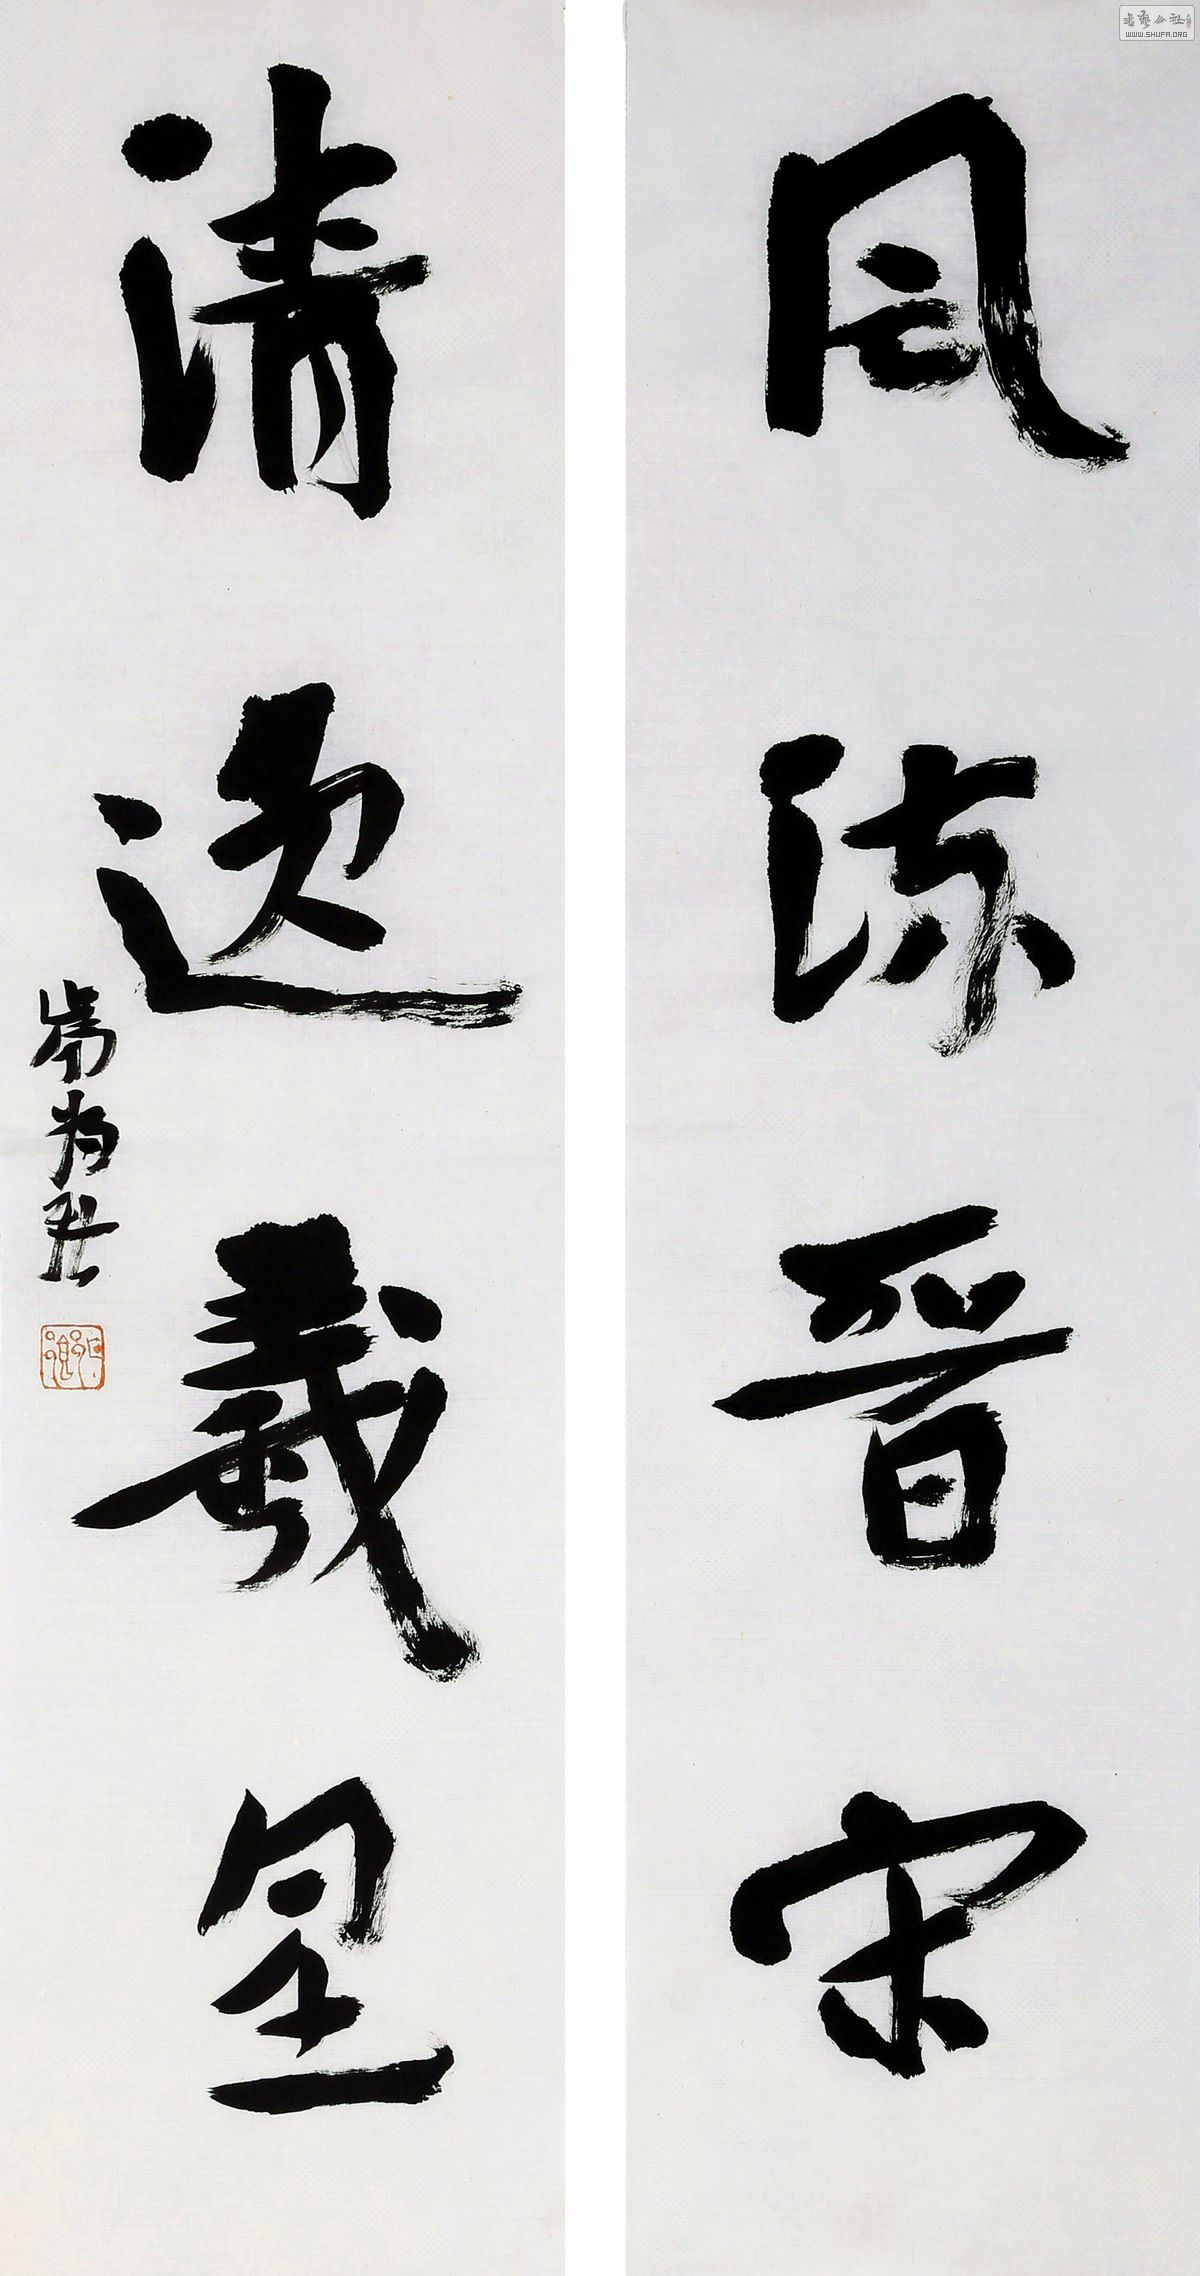 風流晉宋
清逸羲皇
書藝公社
WWW.SHUFA.ORG